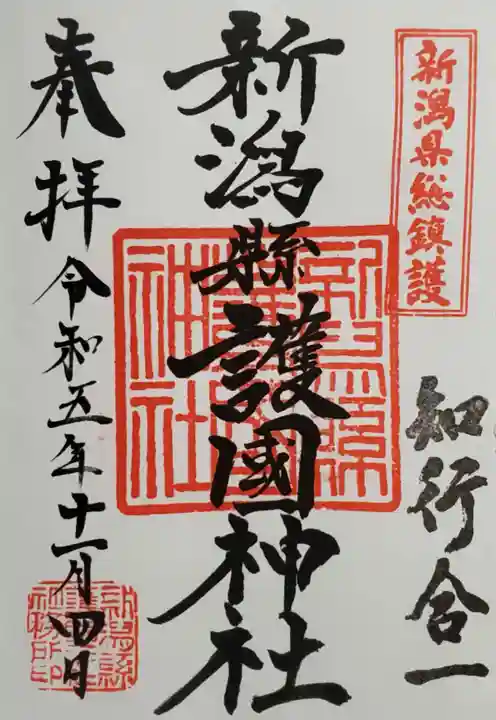 新潟県総鎮護
知行合一
新潟縣護國神社
新潟縣護國神社
奉拝 令和五年十一月四日
新潟縣護國神社社務所印